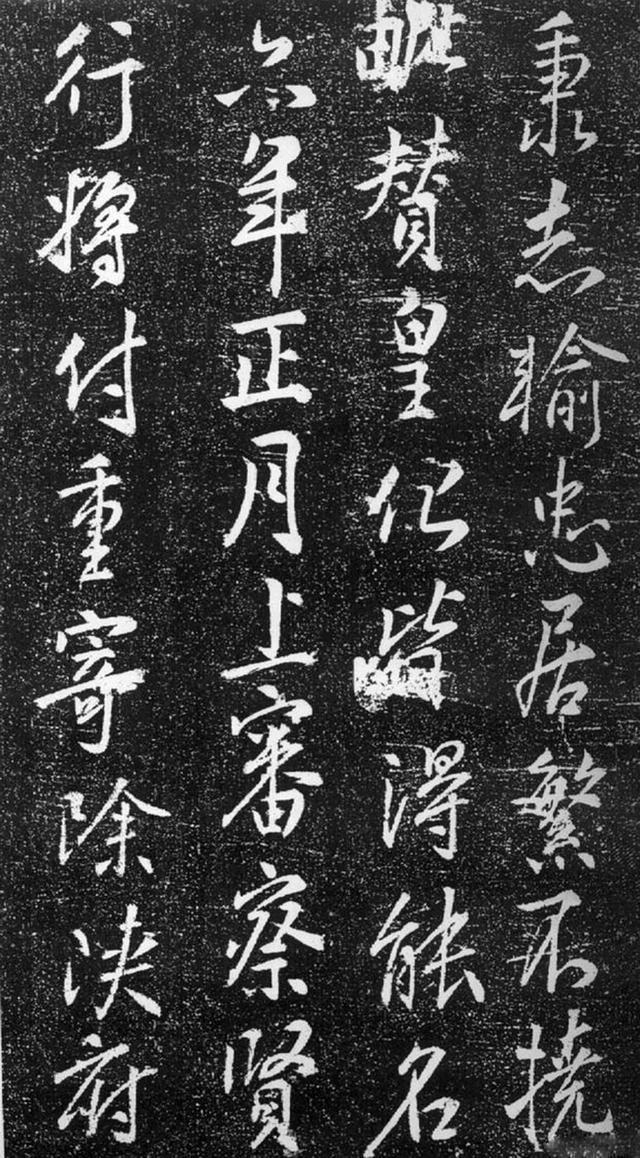 秉志輸忠居繁不撓
贊皇皆得能名
六年正月上審察賢
行將付重寄除陝府